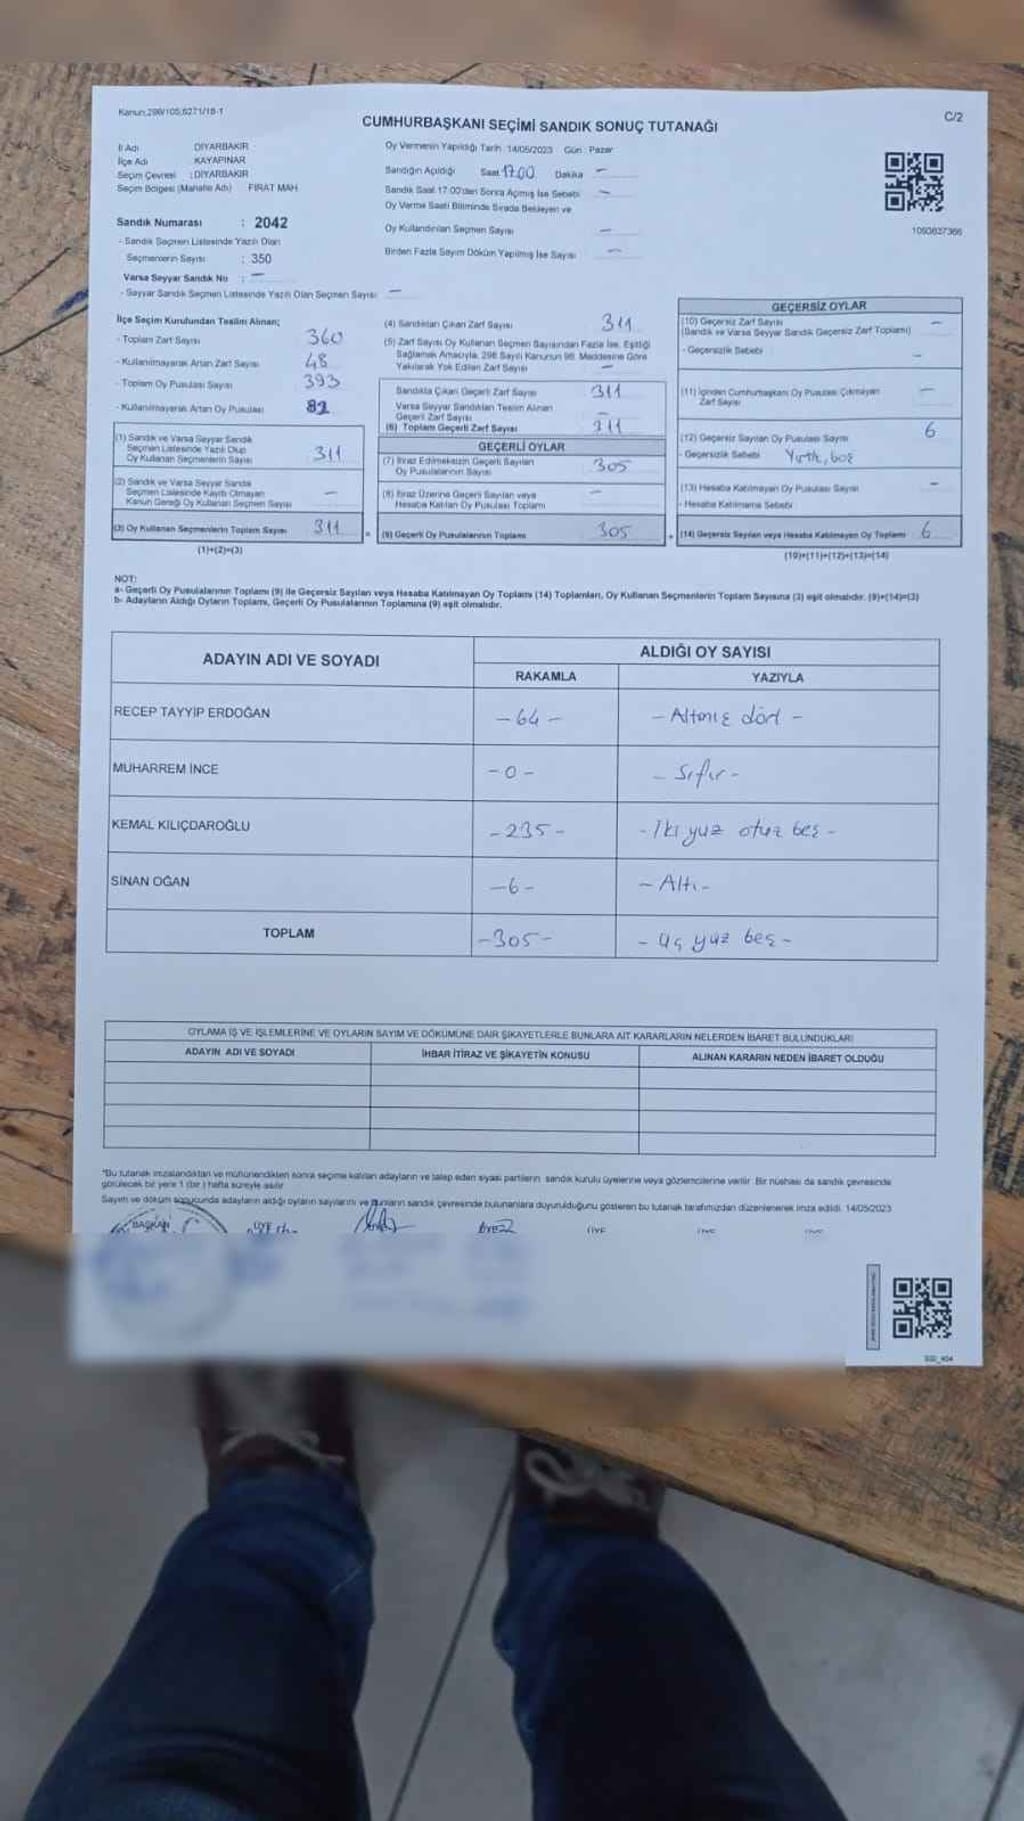 Kanun,298/105;6271/18-1
C/2
CUMHURBAŞKANI SEÇİMİ SANDIK SONUÇ TUTANAĞI
İl Adı DİYARBAKIR
İlçe Adı KAYAPINAR
Seçim Çevresi : DİYARBAKIR
Seçim Bölgesi (Mahalle Adı) FIRAT MAH
Sandık Numarası : 2042
- Sandık Seçmen Listesinde Yazılı Olan
Seçmenlerin Sayısı : 350
Varsa Seyyar Sandık No : -
- Seyyar Sandık Seçmen Listesinde Yazılı Olan Seçmen Sayısı -
Oy Vermenin Yapıldığı Tarih : 14/05/2023 Gün : Pazar
Sandığın Açıldığı Saat 17.00 Dakika -
Sandık Saat 17:00'den Sonra Açılmış İse Sebebi -
Oy Verme Saati Bitiminde Sırada Bekleyen ve
Oy Kullandırılan Seçmen Sayısı -
Birden Fazla Sayım Döküm Yapılmış İse Sayısı -
1093627366
İlçe Seçim Kurulundan Teslim Alınan;
- Toplam Zarf Sayısı 360
- Kullanılmayarak Artan Zarf Sayısı 48
- Toplam Oy Pusulası Sayısı 393
- Kullanılmayarak Artan Oy Pusulası 82
(1) Sandık ve Varsa Seyyar Sandık
Seçmen Listesinde Yazılı Olup
Oy Kullanan Seçmenlerin Sayısı 311
(2) Sandık ve Varsa Seyyar Sandık
Seçmen Listesinde Kayıtlı Olmayan
Kanun Gereği Oy Kullanan Seçmen Sayısı -
(3) Oy Kullanan Seçmenlerin Toplam Sayısı 311
(1)+(2)=(3)
(4) Sandıktan Çıkan Zarf Sayısı 311
(5) Zarf Sayısı Oy Kullanan Seçmen Sayısından Fazla İse, Eşitliği
Sağlamak Amacıyla, 298 Sayılı Kanunun 98. Maddesine Göre
Yakılarak Yok Edilen Zarf Sayısı -
Sandıkta Çıkan Geçerli Zarf Sayısı 311
Varsa Seyyar Sandıktan Teslim Alınan
Geçerli Zarf Sayısı -
(6) Toplam Geçerli Zarf Sayısı 311
GEÇERLİ OYLAR
(7) İtiraz Edilmeksizin Geçerli Sayılan
Oy Pusulalarının Sayısı 305
(8) İtiraz Üzerine Geçerli Sayılan veya
Hesaba Katılan Oy Pusulası Toplamı -
(9) Geçerli Oy Pusulalarının Toplamı 305
GEÇERSİZ OYLAR
(10) Geçersiz Zarf Sayısı -
(Sandık ve Varsa Seyyar Sandık Geçersiz Zarf Toplamı)
- Geçersizlik Sebebi -
(11) İçinden Cumhurbaşkanı Oy Pusulası Çıkmayan
Zarf Sayısı -
(12) Geçersiz Sayılan Oy Pusulası Sayısı 6
- Geçersizlik Sebebi Yırtık, boş
(13) Hesaba Katılmayan Oy Pusulası Sayısı -
- Hesaba Katılmama Sebebi
(14) Geçersiz Sayılan veya Hesaba Katılmayan Oy Toplamı 6
(10)+(11)+(12)+(13)=(14)
NOT:
a- Geçerli Oy Pusulalarının Toplamı (9) ile Geçersiz Sayılan veya Hesaba Katılmayan Oy Toplamı (14) Toplamları, Oy Kullanan Seçmenlerin Toplam Sayısına (3) eşit olmalıdır. (9)+(14)=(3)
b- Adayların Aldığı Oyların Toplamı, Geçerli Oy Pusulalarının Toplamına (9) eşit olmalıdır.
ADAYIN ADI VE SOYADI
ALDIĞI OY SAYISI
RAKAMLA YAZIYLA
RECEP TAYYİP ERDOĞAN -64- -Altmış dört-
MUHARREM İNCE -0- -Sıfır-
KEMAL KILIÇDAROĞLU -235- -İki yüz otuz beş-
SİNAN OĞAN -6- -Altı-
TOPLAM -305- -üç yüz beş-
OYLAMA İŞ VE İŞLEMLERİNE VE OYLARIN SAYIM VE DÖKÜMÜNE DAİR ŞİKAYETLERLE BUNLARA AİT KARARLARIN NELERDEN İBARET BULUNDUKLARI
ADAYIN ADI VE SOYADI İHBAR İTİRAZ VE ŞİKAYETİN KONUSU ALINAN KARARIN NEDEN İBARET OLDUĞU
*Bu tutanak imzalandıktan ve mühürlendikten sonra seçime katılan adayların ve talep eden siyasi partilerin sandık kurulu üyelerine veya gözlemcilerine verilir. Bir nüshası da sandık çevresinde
görülecek bir yere 1 (bir) hafta süreyle asılır.
Sayım ve döküm sonucunda adayların aldığı oyların sayılarını ve bunların sandık çevresinde bulunanlara duyurulduğunu gösteren bu tutanak tarafımızdan düzenlenerek imza edildi. 14/05/2023
BAŞKAN ÜYE ÜYE ÜYE ÜYE ÜYE